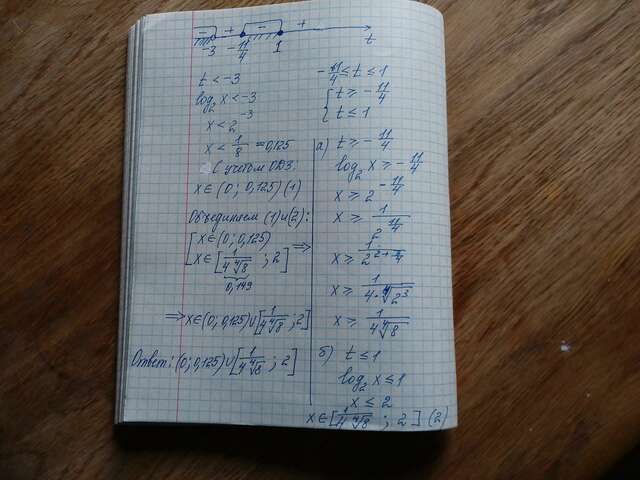 - + - +
-3 -11/4 1 t
t < -3
log₂ x < -3
x < 2⁻³
x < 1/8 = 0,125
С учётом ОДЗ:
x ∈ (0; 0,125) (1)
Объединяем (1) и (2):
[ x ∈ (0; 0,125)
x ∈ [1/(4∜8) ; 2] ⇒
0,149
⇒ x ∈ (0; 0,125) ∪ [1/(4∜8) ; 2]
Ответ: (0; 0,125) ∪ [1/(4∜8) ; 2]
-11/4 ≤ t ≤ 1
{ t ≥ -11/4
t ≤ 1
а) t ≥ -11/4
log₂ x ≥ -11/4
x ≥ 2^(-11/4)
x ≥ 1/2^(11/4)
x ≥ 1/2^(2+3/4)
x ≥ 1/(4·∜2³)
x ≥ 1/(4∜8)
б) t ≤ 1
log₂ x ≤ 1
x ≤ 2
x ∈ [1/(4∜8) ; 2] (2)